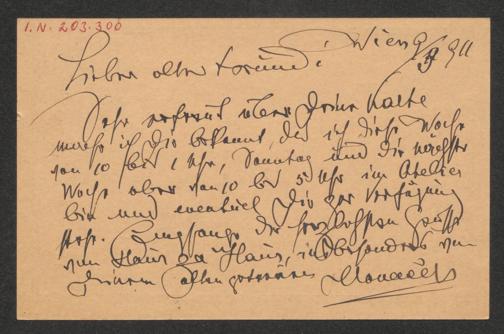 I.N. 203.300
Wien 9/3 90
Lieber alter Freund!
Sehr erfreut über Deine Karte
mache ich Dir bekannt, daß ich diese Woche
von 10 bis 1 Uhr, Sonntag und die nächste
Woche aber von 10 bis 5 Uhr im Atelier
bin und eventuell Dir zur Verfügung
stehe. Empfange die herzlichsten Grüße
von Haus zu Haus, insbesonders von
Deinem alten getreuen